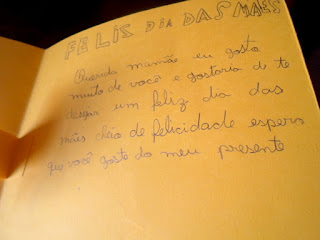 FELIZ DIA DAS MÃES
Querida mamãe eu gosto
muito de você e gostaria de te
desejar um feliz dia das
mães cheio de felicidade espero
que você goste do meu presente